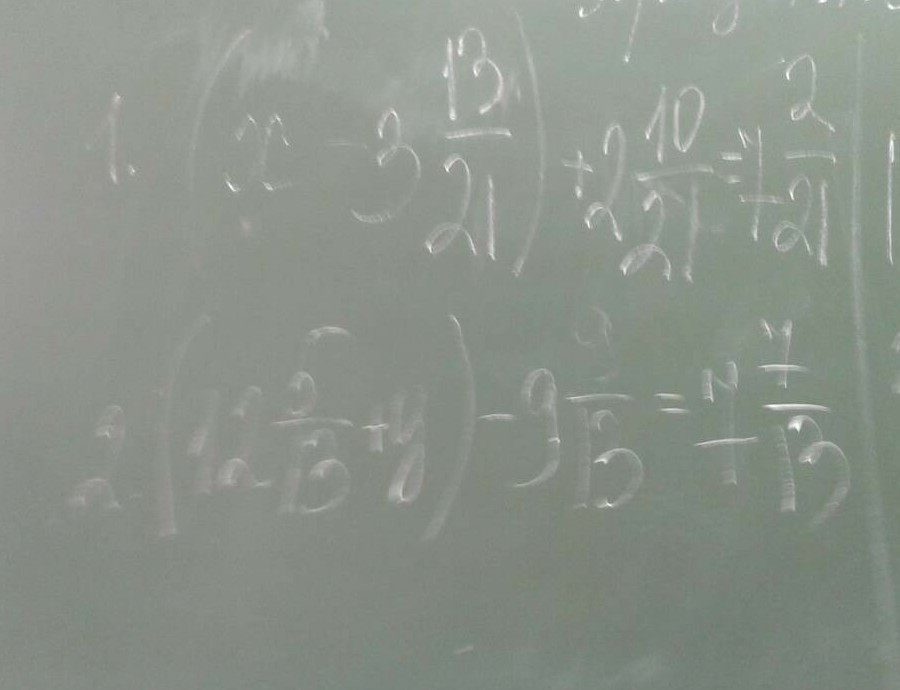 1. (x - 3 13/21) + 2 10/21 = 7 2/21
2 (12 5/13 + y) - 9 9/13 = 7 7/13